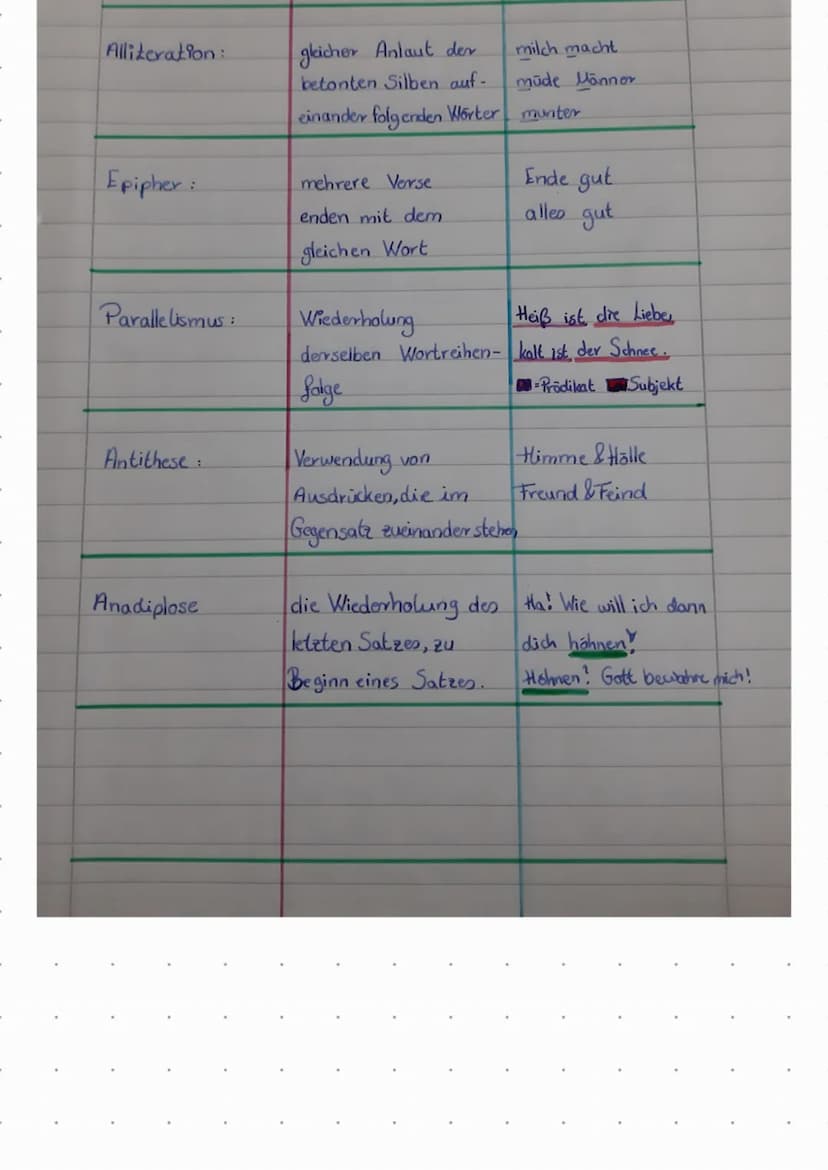 Alliteration: gleicher Anlaut der milch macht
betonten Silben auf- müde Männer
einander folgenden Wörter munter
Epipher: mehrere Verse Ende gut
enden mit dem alles gut
gleichen Wort
Parallelismus: Wiederholung Heiß ist die Liebe,
derselben Wortreihen- kalt ist der Schnee.
folge =Prädikat Subjekt
Antithese: Verwendung von Himme & Hölle
Ausdrücken, die im Freund & Feind
Gegensatz zueinander stehen
Anadiplose die Wiederholung des Ha! Wie will ich dann
letzten Satzes, zu dich höhnen!
Beginn eines Satzes. Höhnen! Gott bewahre mich!